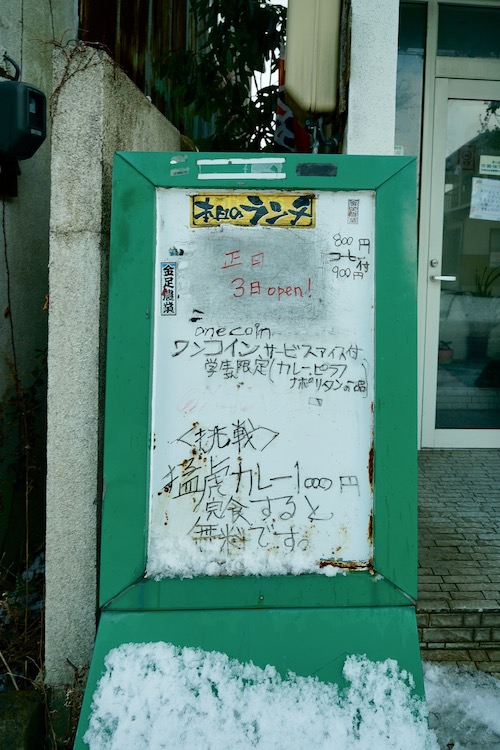 本日のランチ
800円
コーヒー付
900円
正日
3日open!
one coin
ワンコイン、サービスアイス付
学生限定(カレー、ピラフ
ナポリタンの品)
<挑戦>
猛虎カレー1000円
完食すると
無料です。